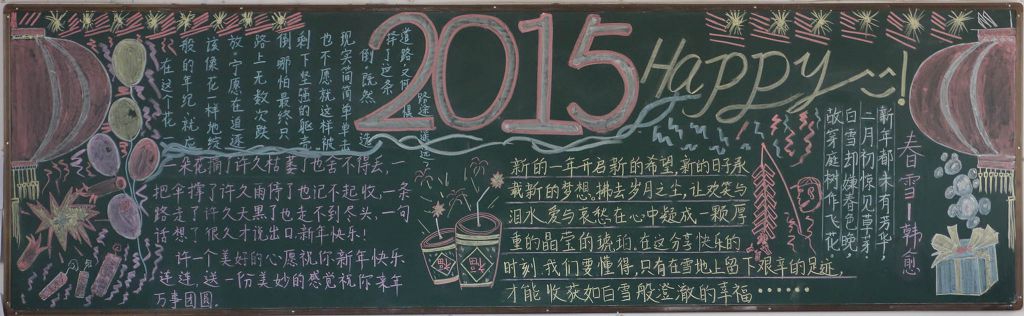 在这个花一
般的年纪,就应
该像花一样地绽
放,宁愿在追逐
路上无数次跌
倒,哪怕最终只
剩下坚强的躯壳
也不愿就这样被
现实简简单单击
倒,既然选
择了这条
道路又何惧
路途遥
2015
Happy !
一朵花摘了许久枯萎了也舍不得丢,一
把伞撑了许久雨停了也记不起收,一条
路走了许久天黑了也走不到尽头,一句
话想了很久才说出口,新年快乐!
许一个美好的心愿祝你新年快乐
连连,送一份美妙的感觉祝你来年
万事团圆.
福
福
新的一年开启新的希望,新的日子承
载新的梦想.拂去岁月之尘,让欢笑与
泪水,爱与哀愁在心中凝成一颗厚
重的晶莹的琥珀,在这分享快乐的
时刻,我们要懂得,只有在雪地上留下艰辛的足迹,
才能收获如白雪般澄澈的幸福······
春雪—韩愈
新年都未有芳华,
二月初惊见草芽.
白雪却嫌春色晚,
故穿庭树作飞花.